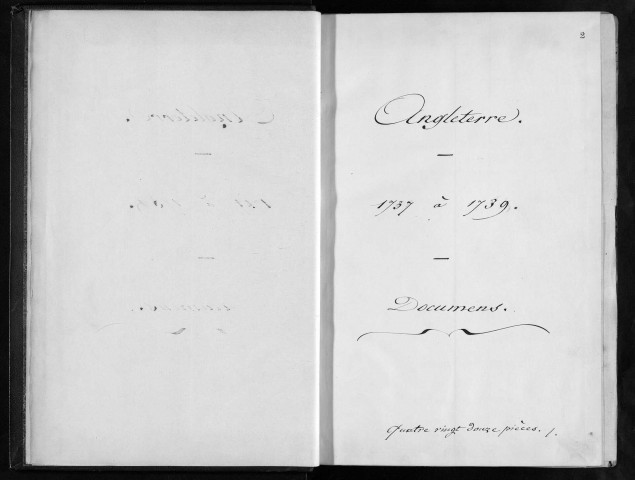 2
Angleterre.
—
1737 à 1739.
—
Documens.
Quatre vingt douze pièces. /.